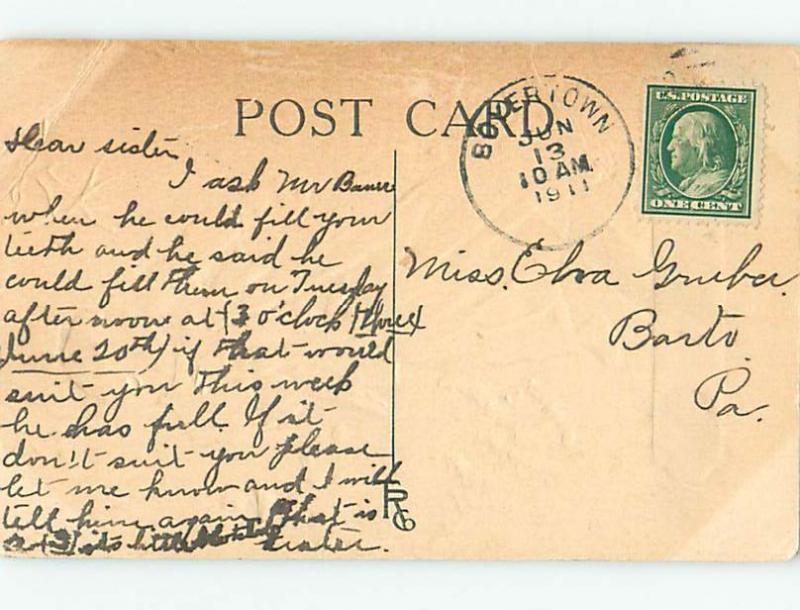 POST CARD
BOYERTOWN
JUN
13
10 AM
1911
U.S. POSTAGE
ONE CENT
Dear sister
I ask Mr
when he could fill your
teeth and he said he
could fill them on Tuesday
after noone at (3 o'clock)
June 20th) if that would
suit you this week
he has full. If it
don't suit you please
let me know and I will
tell him again. That is
a (3) its little
Miss. Elva Gruber.
Barto
Pa.